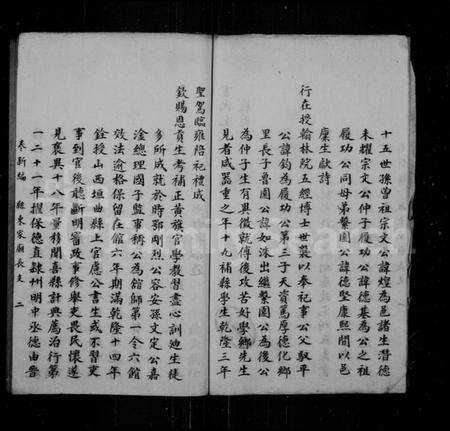 十五世孫曾祖宗文公諱煌為邑諸生潛德
未耀宗文公仲子履功公諱德基為公之祖
履功公同母弟繫園公諱德堅康熙間以邑
廩生獻詩
行在授翰林院五經博士世襲以奉祀事公父馭平
公諱鈞為履功公第三子天資篤厚德化鄉
里長子魯園公諱如洙出繼繫園公為後公
為仲子生有異徵就傅後攻苦好學鄉先生
見者咸器重之年十九補縣學生乾隆三年
聖駕臨雍陪祀禮成
欽賜恩貢生考補正黃旗官學教習盡心訓廸生徒
多所成就於時鄂剛烈公容安孫文定公嘉
淦總理國子監事稱公為館師第一令六館
效法逾格保留在館六年期滿乾隆十四年
銓授山西垣曲縣上官慮公書生或不習吏
事到官後聽斷明審政事修舉吏畏民懷遂
見褒異十八年量移聞喜縣計典薦治行第
一二十一年擢保德直隸州明中丞德由魯
新編 縣東家廟長支 二